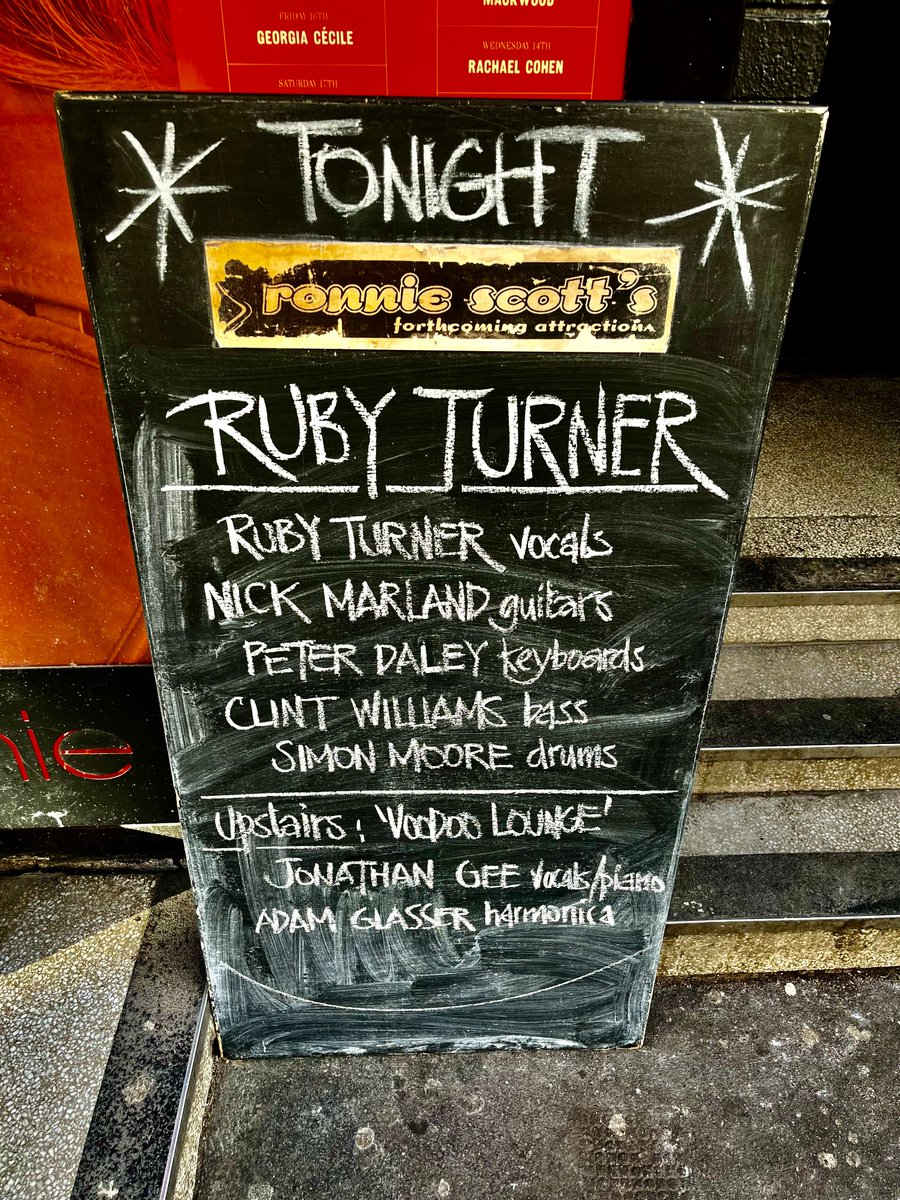 MACKWOOD
FRIDAY 16TH
GEORGIA CÉCILE
WEDNESDAY 14TH
RACHAEL COHEN
SATURDAY 17TH
TONIGHT
ronnie scott's
forthcoming attractions
RUBY TURNER
RUBY TURNER vocals
NICK MARLAND guitars
PETER DALEY keyboards
CLINT WILLIAMS bass
SIMON MOORE drums
Upstairs: 'VOODOO LOUNGE'
JONATHAN GEE vocals/piano
ADAM GLASSER harmonica
nie